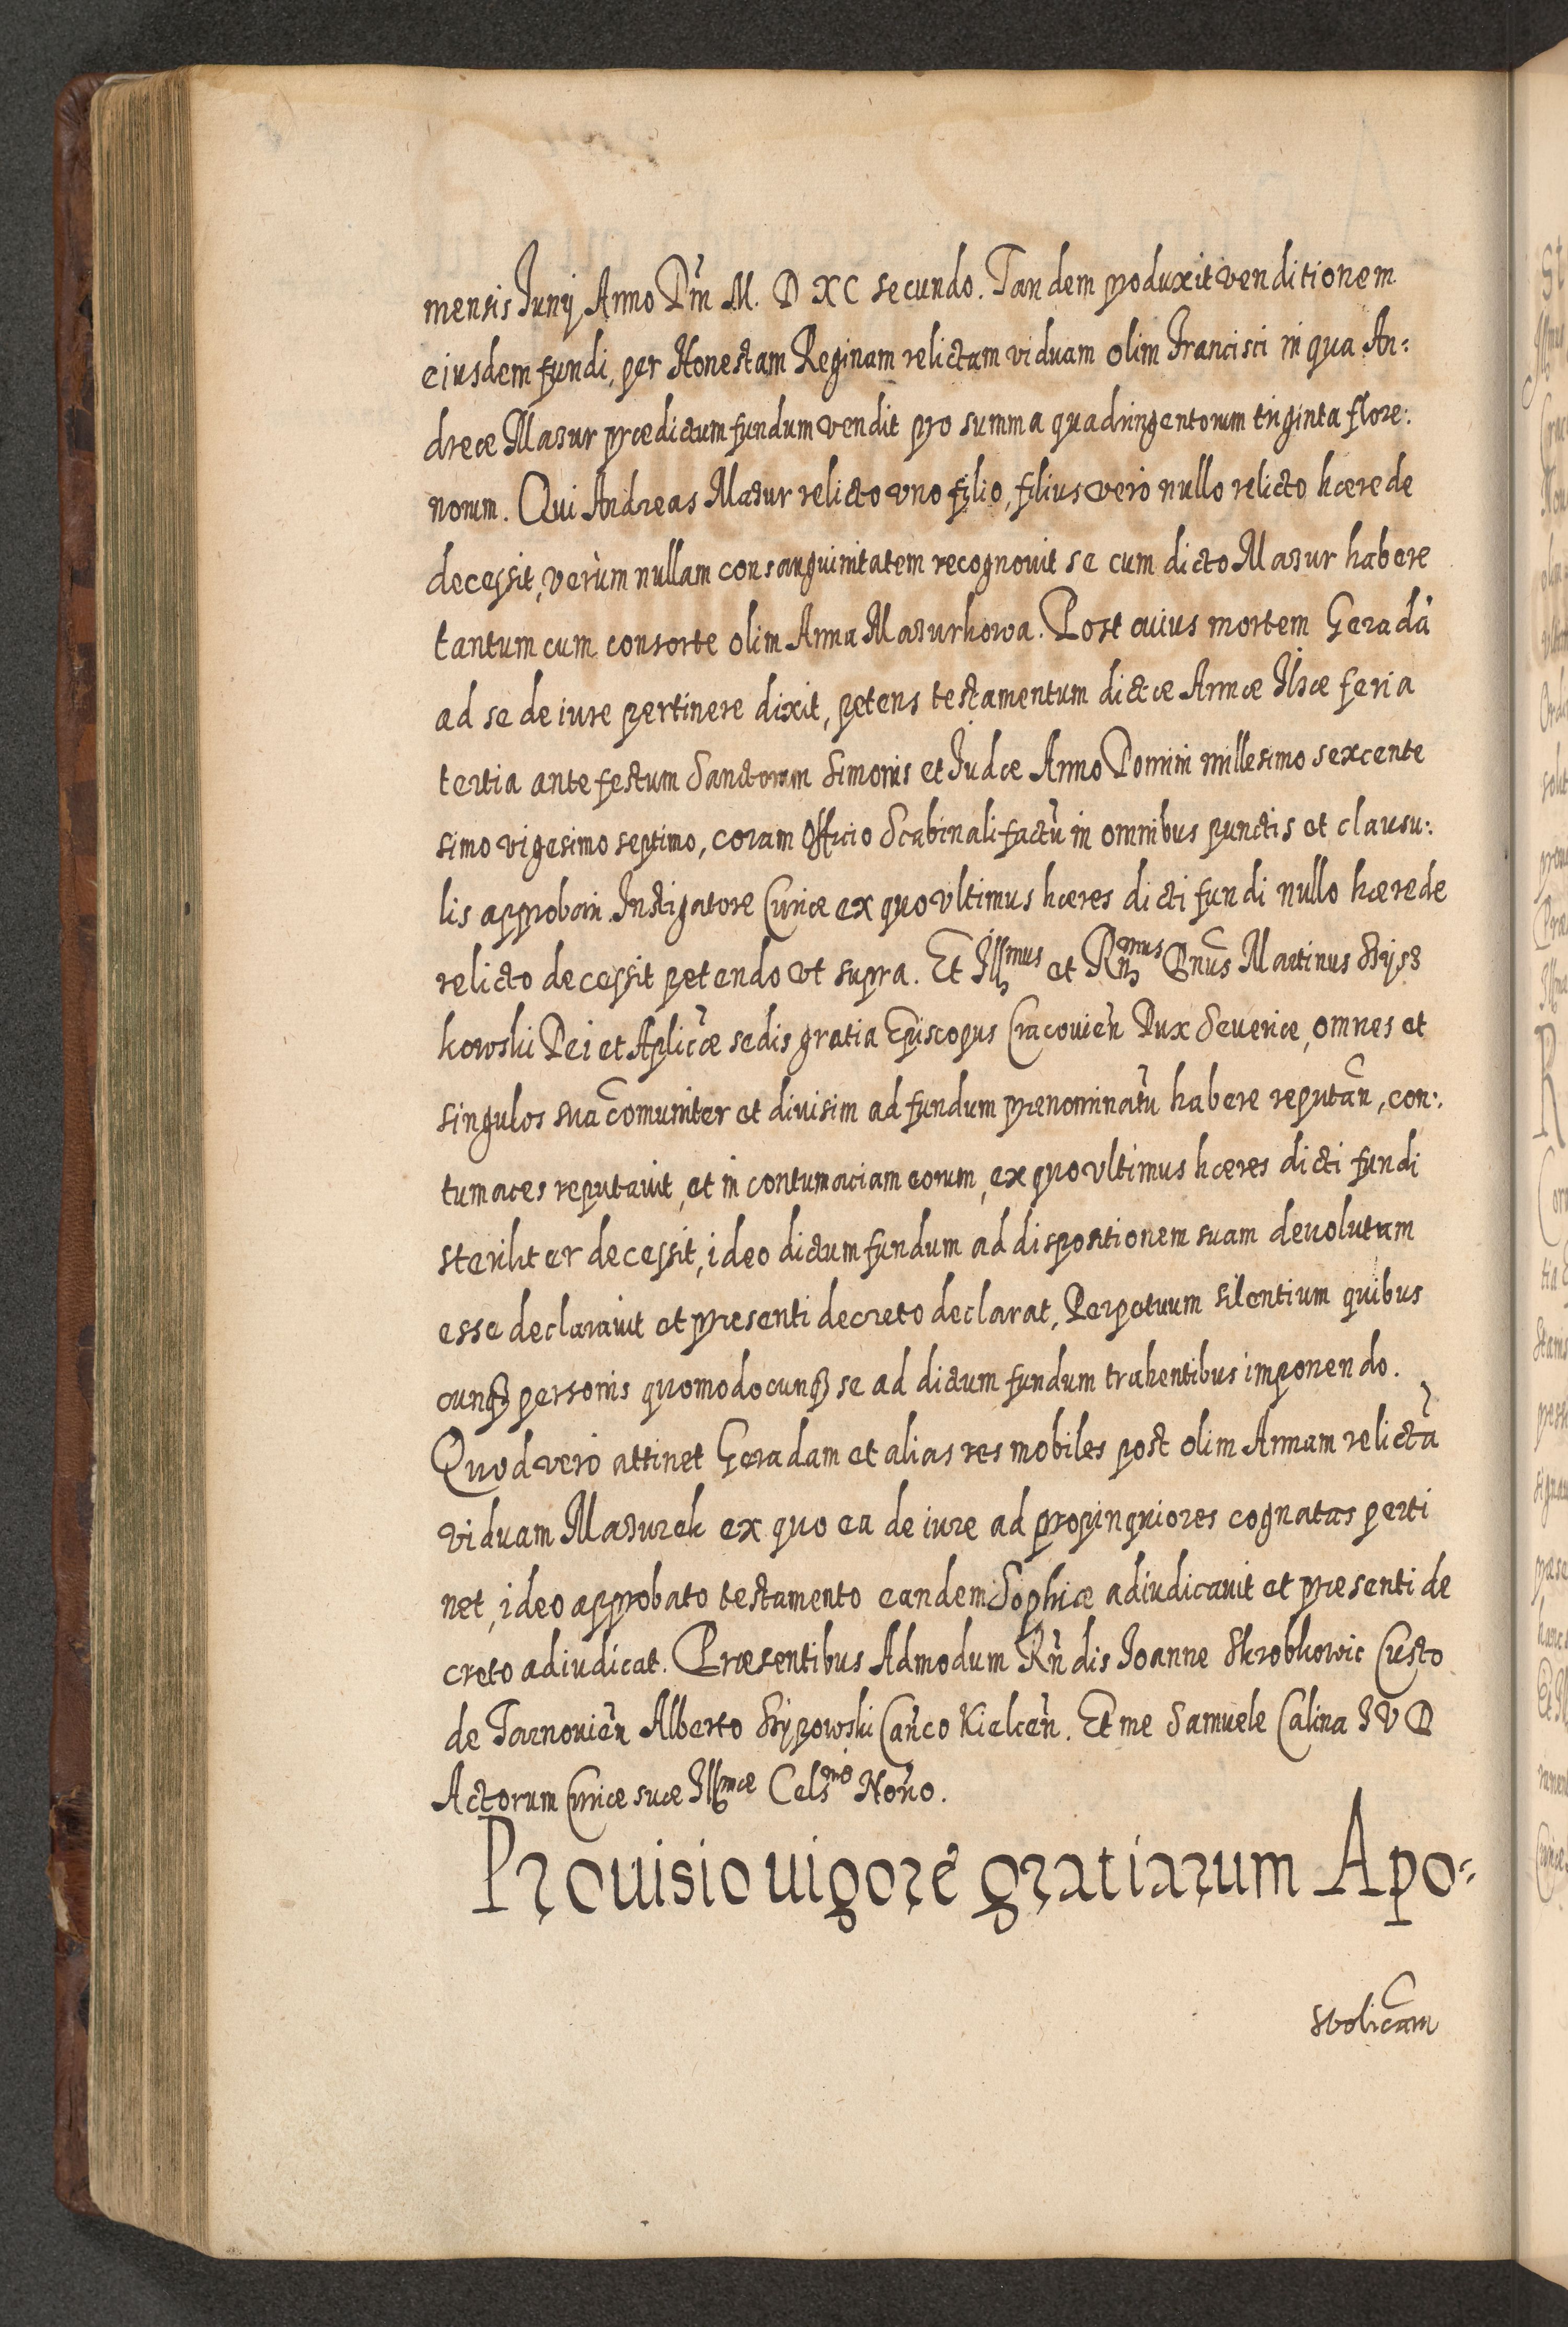 mensis Junij Anno Dñi M. D XC secundo. Tandem produxit venditionem
eiusdem fundi, per Honestam Reginam relictam viduam olim Francisci in qua An:
dreæ Mazur prædictum fundum vendit pro summa quadringentorum triginta flore:
norum. Qui Andreas Mazur relicto vno filio, filius vero nullo relicto hærede
decessit, verùm nullam consanguinitatem recognovit se cum dicto Mazur habere
tantum cum consorte olim Anna Mazurkowa. Post cuius mortem Geradã
ad se de iure pertinere dixit, petens testamentum dictæ Annæ Ilzæ feria
tertia ante festum Sanctorum Simonis et Judæ Anno Domini millesimo sexcente
simo vigesimo septimo, coram Officio Scabinali factũ in omnibus punctis et clausu:
lis approbari. Instigatore Curiæ ex quo vltimus hæres dicti fundi nullo hærede
relicto decessit petendo vt supra. Et Illmus et Rñmus Dnũs Martinus Szysz
kowski Dei et Aplicæ sedis gratia Episcopus Cracovieñ Dux Severiæ, omnes et
singulos sua comuniter et divisim ad fundum prenominatũ habere reputañ, con:
tumaces reputavit, et in contumaciam eorum, ex quo vltimus hæres dicti fundi
steriliter decessit, ideo dictum fundum ad dispositionem suam devolutum
esse declaravit et presenti decreto declarat, Perpetuum silentium quibus
cunqȝ personis quomodocunqȝ se ad dictum fundum trahentibus imponendo.
Quod vero attinet Geradam et alias res mobiles post olim Annam relictã
viduam Mazurek ex quo ea de iure ad propinquiores cognatas perti
net, ideo approbato testamento eandem Sophiæ adiudicavit et præsenti de
creto adiudicat. Præsentibus Admodum Rñdis Joanne Skrobkowic Custo
de Tarnovieñ Alberto Lipowski Cañco Kielceñ. Et me Samuele Calina J V D
Actorum Curiæ suæ Illmæ Celsmo Noño.
Provisio vigore gratiarum Apo:
stolicam